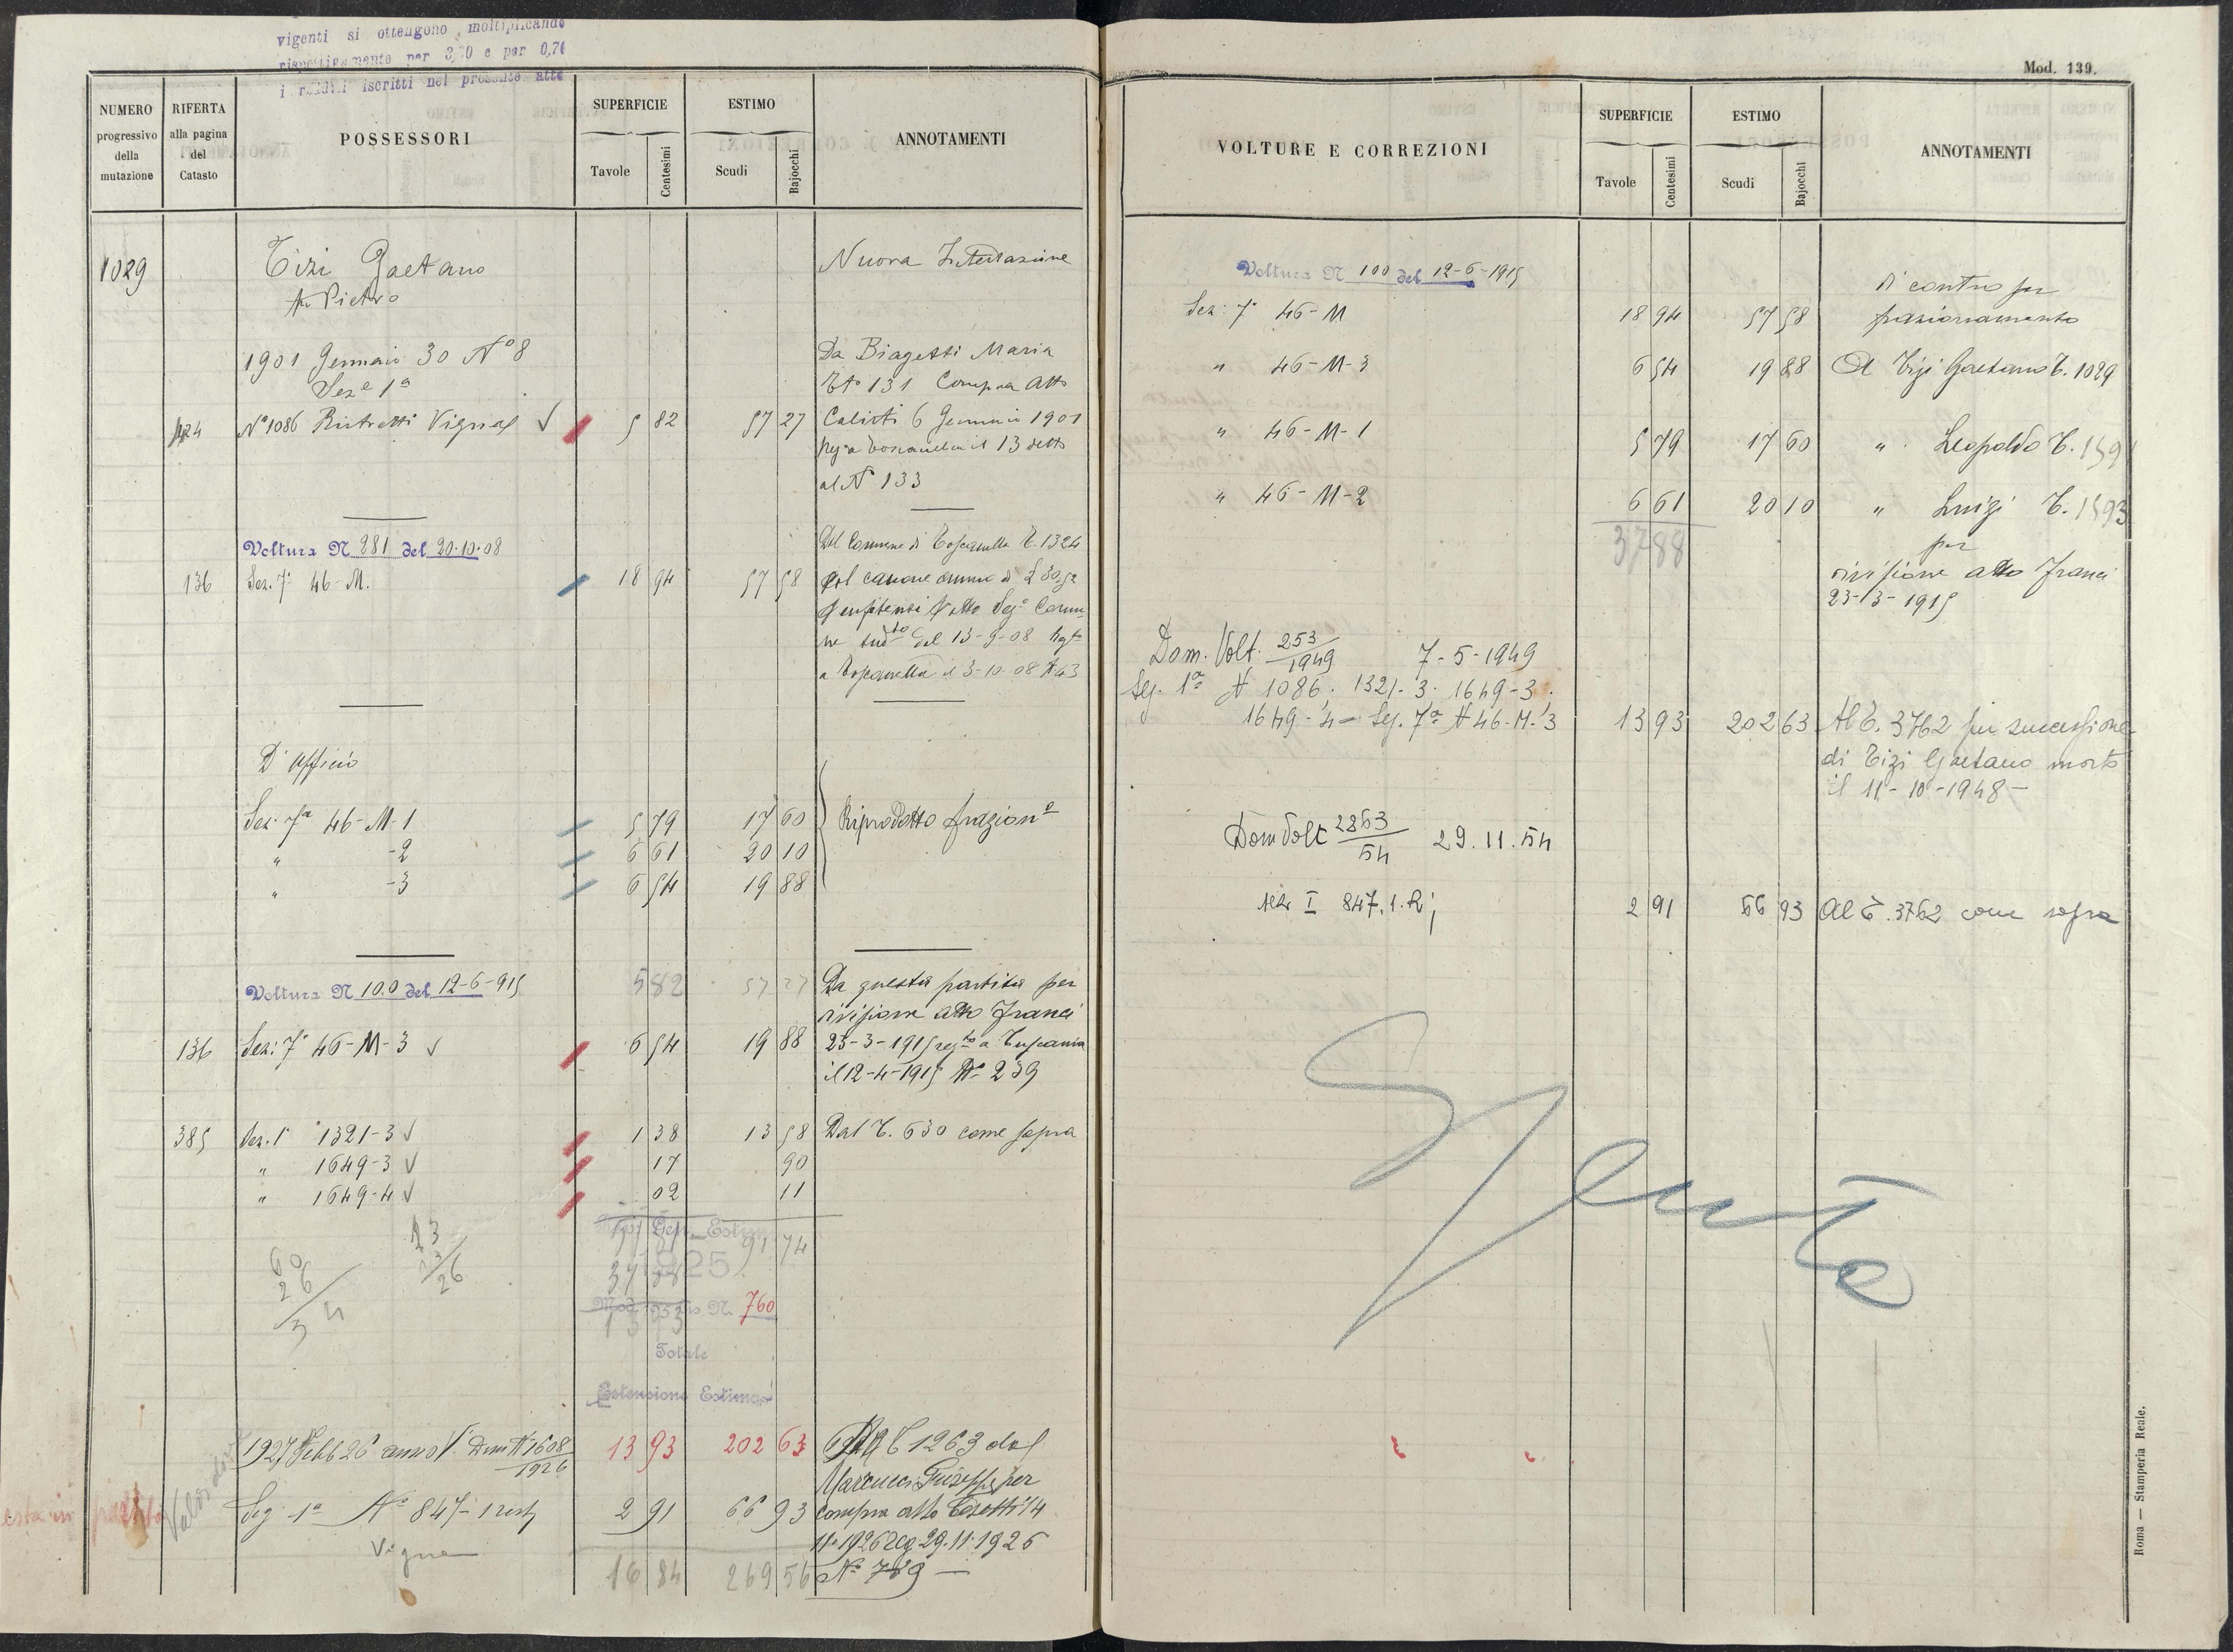 vigenti si ottengono moltiplicando
rispettivamente per 3,70 e per 0,70
i redditi iscritti nel presente atto
NUMERO progressivo della mutazione
RIFERTA alla pagina del Catasto
POSSESSORI
SUPERFICIE
Tavole Centesimi
ESTIMO
Scudi Bajocchi
ANNOTAMENTI
1029 Tizi Gaetano Nuova Intestazione
fu Pietro
1901 Gennaio 30 N° 8 Da Biagetti Maria
Seze 1a Cto 131 Compra Atto
124 N° 1086 Ristretti Vignal √ 5 82 57 27 Calisti 6 Gennaio 1901
Reg a Toscanella il 13 detto
al N° 133
Voltura N 281 del 20.10.08 Dal Comune di Toscanella C. 1324
136 Sez. 7a 46-M. 18 94 57 58 col canone annuo di £
del 13-9-08
a Toscanella il 3-10-08 N 43
D'Ufficio
Sez. 7a 46-M-1 5 79 17 60 Riprodotto frazione
" -2 6 61 20 10
" -3 6 54 19 88
Voltura N 100 del 12-6-915 5 82 57 27 Da questa partita per
divisione atto Franci
136 Sez: 7a 46-M-3 √ 6 54 19 88 23-3-1915 regto a Tuscania
il 12-4-1915 N° 239
385 Sez. 1a 1321-3 √ 1 38 13 58 Dal C. 630 come sopra
" 1649-3 √ 17 90
" 1649-4 √ 02 11
91 74
23
26
60
26
N. 760
Totale
Estensione Estimo
1927 Febb 26 anno V. Dom N 1608/1926 13 93 202 63 Dal C 1263 da
Marcucci Giuseppe per
Sez 1a N° 847-1 rest 2 91 66 93 compra atto Cesetti 14
11-1926 reg 29.11.1926
Vigna
16 84 269 56 N° 789 —
Mod. 139.
VOLTURE E CORREZIONI
SUPERFICIE
Tavole Centesimi
ESTIMO
Scudi Bajocchi
ANNOTAMENTI
Voltura N 100 del 12-6-1915
Di contro per
Sez: 7a 46-M 18 94 57 58 frazionamento
" 46-M-3 6 54 19 88 A Tizi Gaetano C. 1029
" 46-M-1 5 79 17 60 " Leopoldo C.
" 46-M-2 6 61 20 10 " Luigi C. 1593
37 88
per
divisione atto Franci
23-3-1915
Dom. Volt. 253/1949 7-5-1949
Sez. 1a N 1086; 1321-3; 1649-3;
1649-4 = Sez. 7a N 46-M-3 13 93 202 63 Al C. 3762 per successione
di Tizi Gaetano morto
il 11-10-1948 —
Dom Volt 2263/54 29.11.54
sez I 847.1.R; 2 91 66 93 Al C. 3762 come sopra
Spenta
Roma — Stamperia Reale.